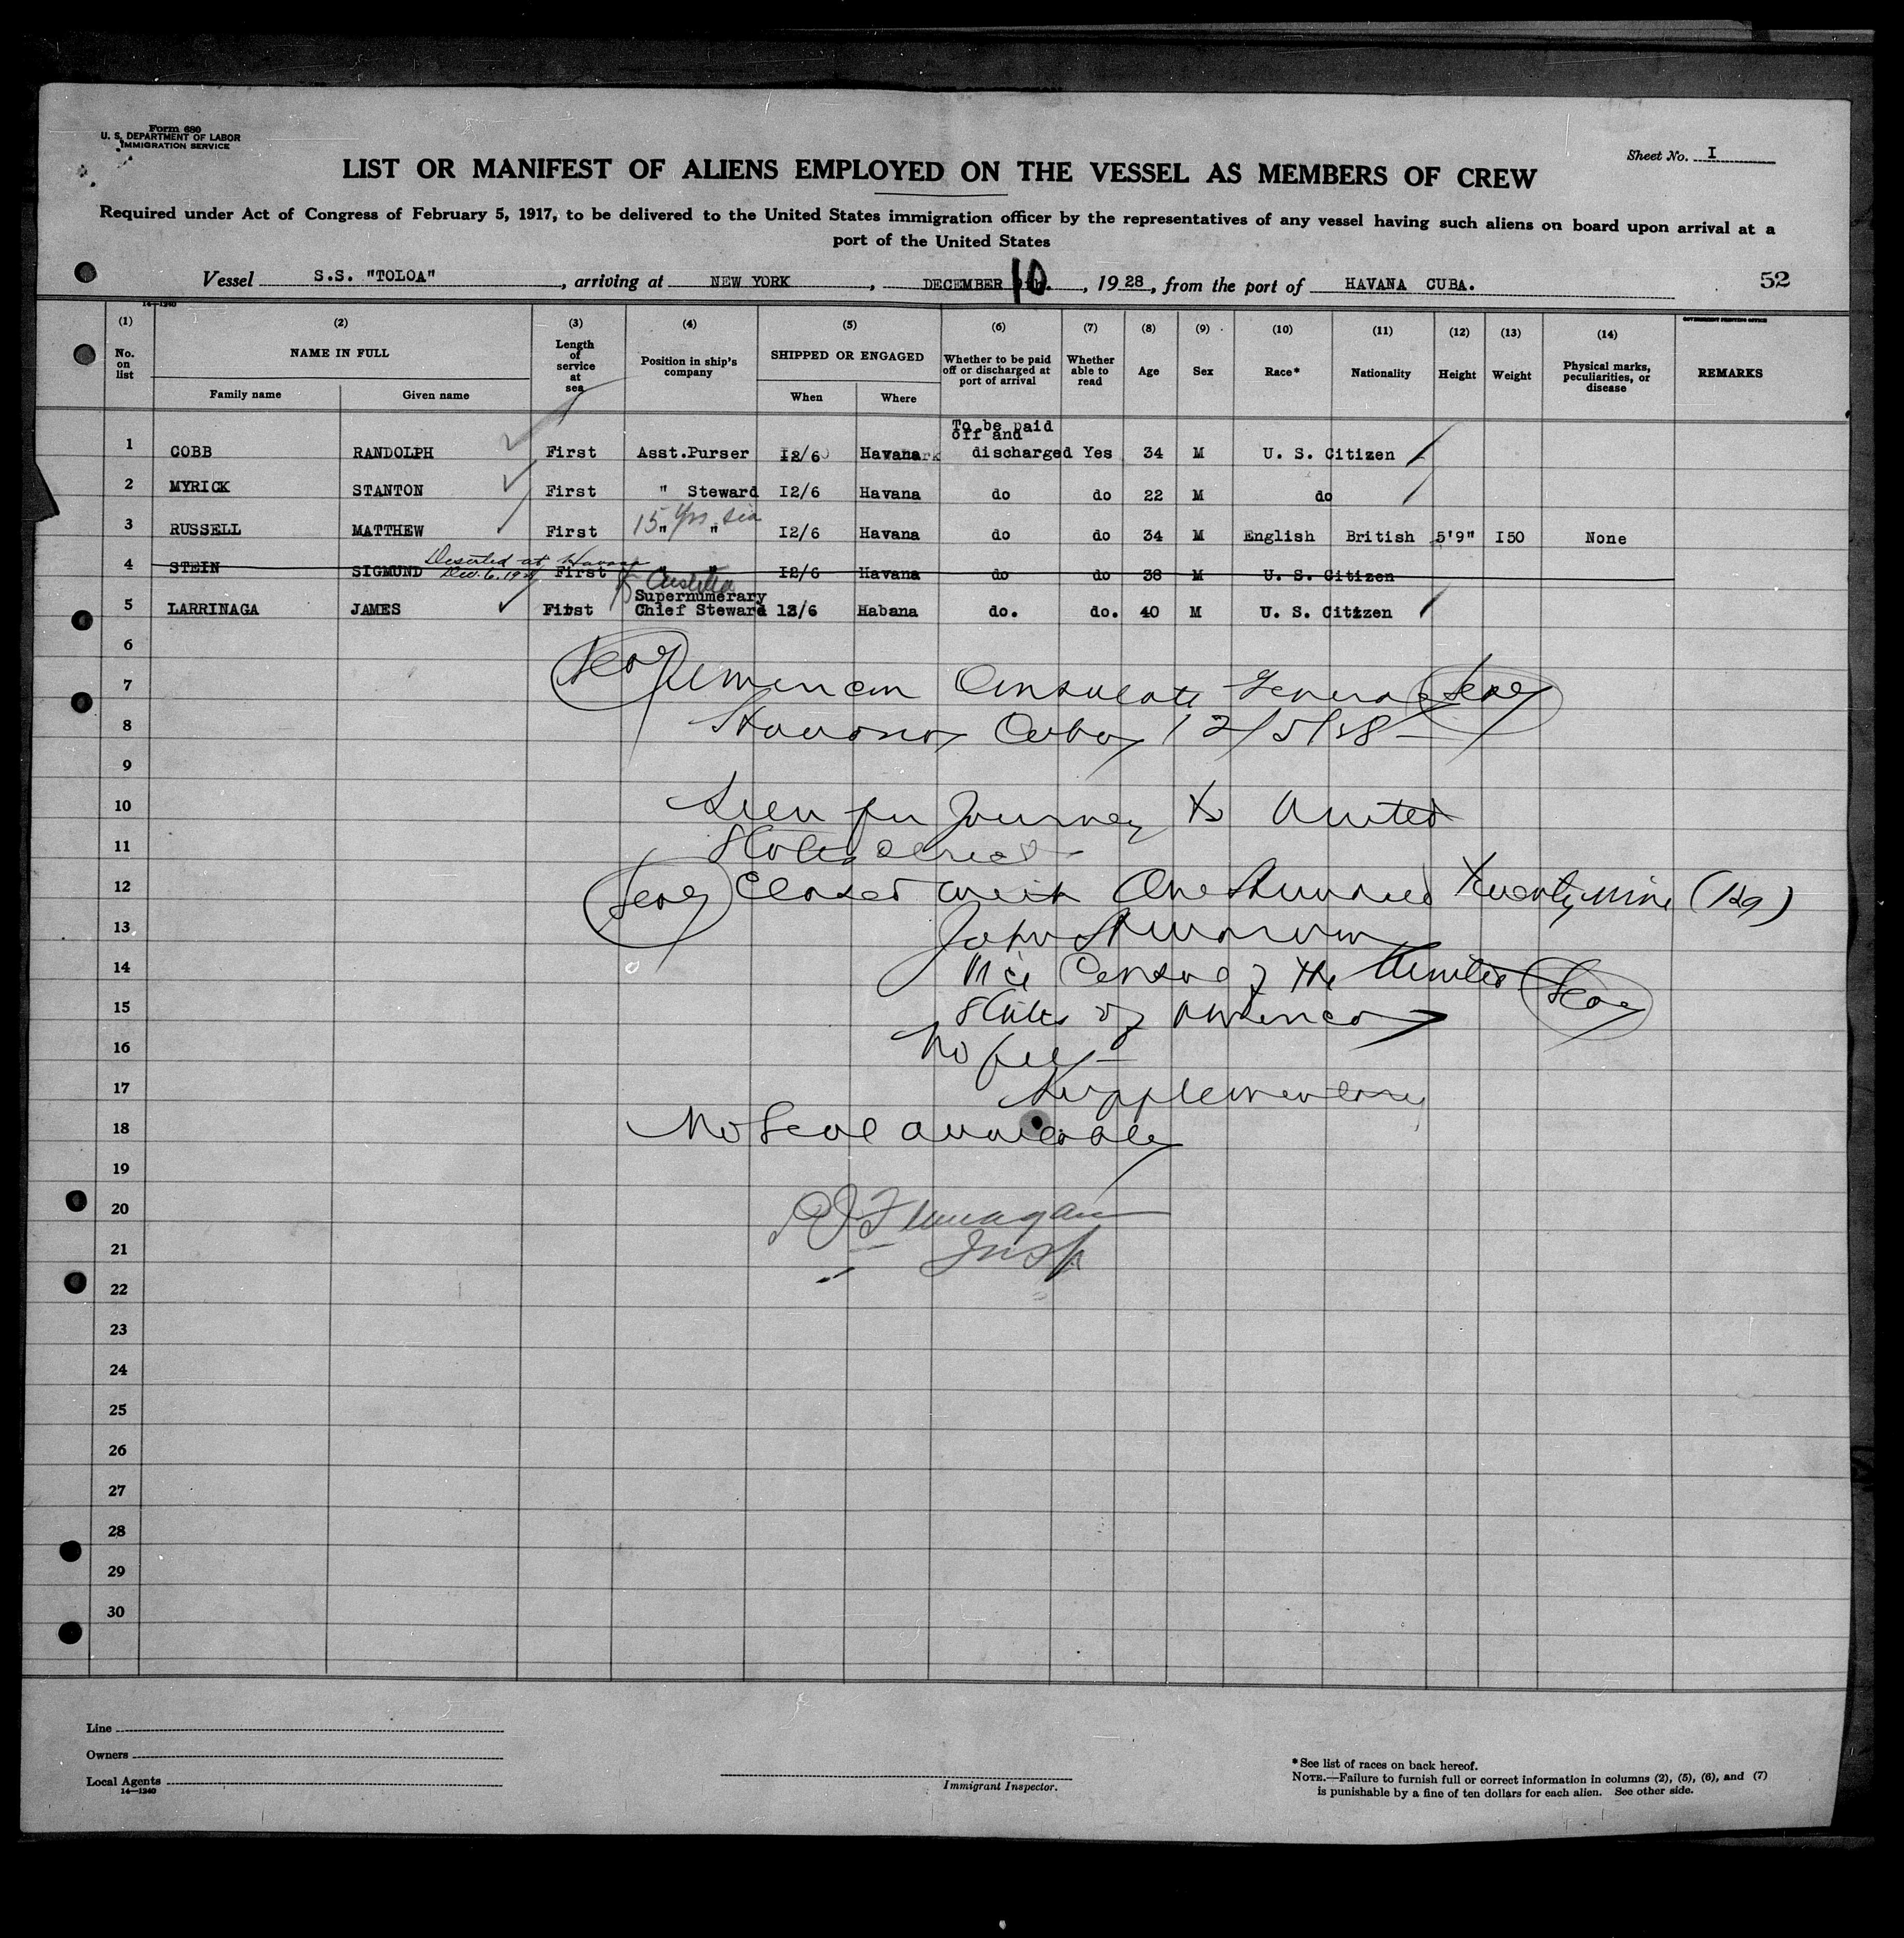 Form 680
U. S. DEPARTMENT OF LABOR
IMMIGRATION SERVICE
Sheet No. I
LIST OR MANIFEST OF ALIENS EMPLOYED ON THE VESSEL AS MEMBERS OF CREW
Required under Act of Congress of February 5, 1917, to be delivered to the United States immigration officer by the representatives of any vessel having such aliens on board upon arrival at a
port of the United States
Vessel S.S. "TOLOA", arriving at NEW YORK, DECEMBER 10, 1928, from the port of HAVANA CUBA. 52
14—1240
GOVERNMENT PRINTING OFFICE
(1) (2) (3) (4) (5) (6) (7) (8) (9) (10) (11) (12) (13) (14)
No. on list NAME IN FULL Length of service at sea Position in ship's company SHIPPED OR ENGAGED Whether to be paid off or discharged at port of arrival Whether able to read Age Sex Race* Nationality Height Weight Physical marks, peculiarities, or disease REMARKS
Family name Given name When Where
To be paid
off and
1 COBB RANDOLPH First Asst.Purser I2/6 Havana discharged Yes 34 M U. S. Citizen
2 MYRICK STANTON First " Steward I2/6 Havana do do 22 M do
15 Yrs sea
3 RUSSELL MATTHEW First " " I2/6 Havana do do 34 M English British 5'9" I50 None
Deserted at Havana
Dec. 6. 1928
4 STEIN SIGMUND First " " I2/6 Havana do do 38 M U. S. Citizen
Supernumerary
5 LARRINAGA JAMES First Chief Steward 12/6 Habana do. do. 40 M U. S. Citizen
6
7 Seal American Consulate General Seal
8 Havana Cuba 12/5/28
9
10 Seen for Journey to United
11 States direct
12 Seal Closed with One Hundred Twenty nine (129)
13 John
14 Vice Consul of the United Seal
15 States of America
16 No fee
17 Supplementary
18 No Seal available
19
20 Flanagan
21 Insp
22
23
24
25
26
27
28
29
30
Line
Owners
Local Agents
14—1240
Immigrant Inspector.
*See list of races on back hereof.
NOTE.—Failure to furnish full or correct information in columns (2), (5), (6), and (7)
is punishable by a fine of ten dollars for each alien. See other side.